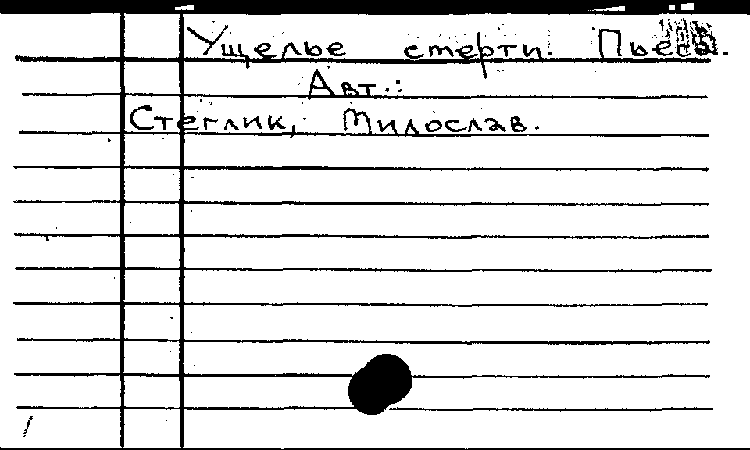 Ущелье смерти. Пьеса.
Авт.:
Стеглик, Милослав.